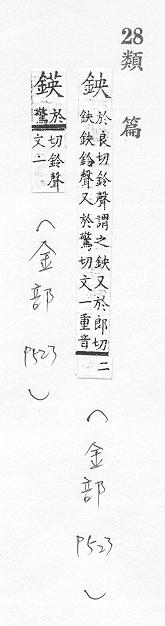 28類篇
鉠
於良切鈴聲謂之鉠又於郎切
鉠鉠鈴聲又於驚切文一重音
二
(金部 P523)
鍈
於驚切鈴聲
文一
(金部 P523)